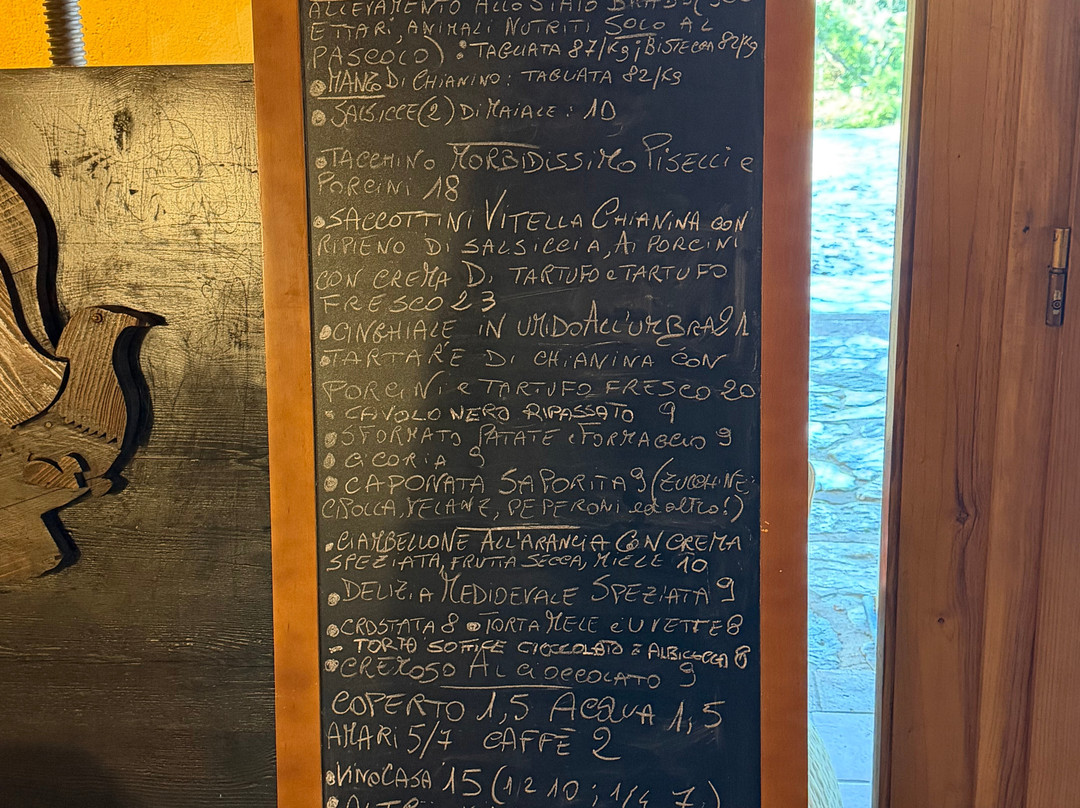 ALLEVAMENTO ALLO STATO BRADO (300
ETTARI, ANIMALI NUTRITI SOLO AL
PASCOLO) : TAGLIATA 87/Kg; BISTECCA 82/Kg
• MANZO DI CHIANINO : TAGLIATA 82/Kg
• SALSICCE (2) DI MAIALE : 10
• TACCHINO MORBIDISSIMO PISELLI e
PORCINI 18
• SACCOTTINI VITELLA CHIANINA CON
RIPIENO DI SALSICCIA, AI PORCINI
CON CREMA DI TARTUFO e TARTUFO
FRESCO 23
• CINGHIALE IN UMIDO ALL'UMBRA 21
• TARTARE DI CHIANINA CON
PORCINI e TARTUFO FRESCO 20
• CAVOLO NERO RIPASSATO 9
• SFORMATO PATATE e FORMAGGIO 9
• CICORIA 9
• CAPONATA SAPORITA 9 (ZUCCHINE,
CIPOLLA, MELANZ, PEPERONI ed altro!)
• CIAMBELLONE ALL'ARANCIA CON CREMA
SPEZIATA, FRUTTA SECCA, MIELE 10
• DELIZIA MEDIOEVALE SPEZIATA 9
• CROSTATA 8 • TORTA MELE e UVETTE 8
- TORTO SOFFICE CIOCCOLATO e ALBICOCCA 8
• CREMOSO AL CIOCCOLATO 9
COPERTO 1,5 ACQUA 1,5
AMARI 5/7 CAFFÈ 2
• VINO CASA 15 (1/2 10 ; 1/4 7)